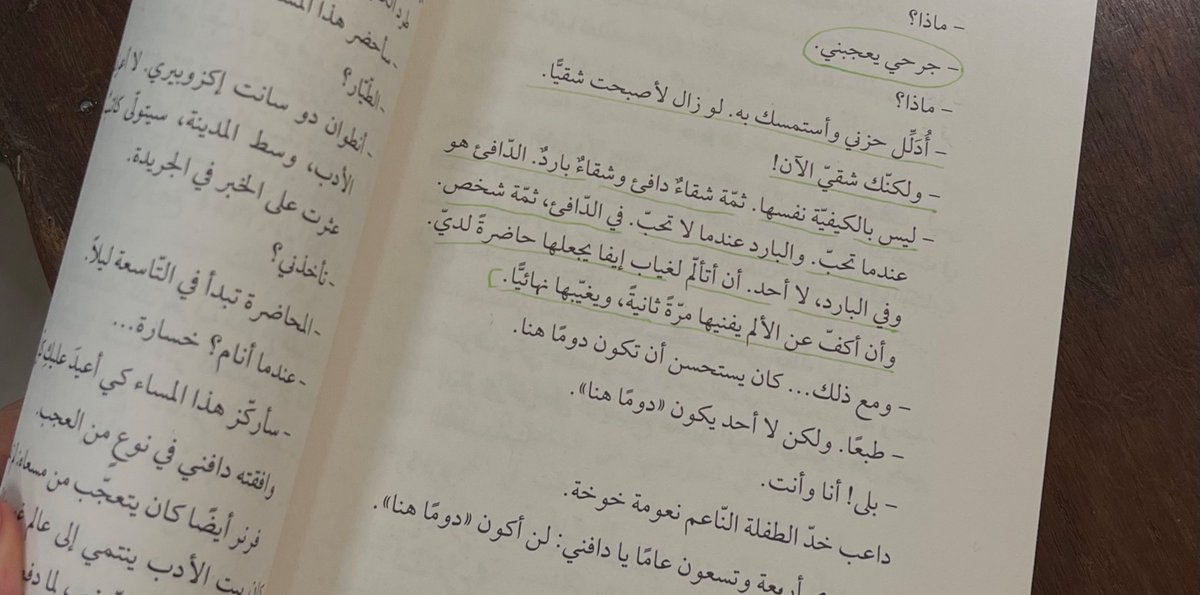 - ماذا؟
- جرحي يعجبني.
- ماذا؟
- أُدَلِّل حزني وأستمسك به. لو زال لأصبحت شقيًّا.
- ولكنّك شقيّ الآن!
- ليس بالكيفيّة نفسها. ثمّة شقاءٌ دافئ وشقاءٌ باردٌ. الدّافئ هو
عندما تحبّ. والبارد عندما لا تحبّ. في الدّافئ، ثمّة شخص.
وفي البارد، لا أحد. أن أتألّم لغياب إيفا يجعلها حاضرةً لديّ.
وأن أكفّ عن الألم يفنيها مرّةً ثانيةً، ويغيّبها نهائيًّا.
- ومع ذلك... كان يستحسن أن تكون دومًا هنا.
- طبعًا. ولكن لا أحد يكون «دومًا هنا».
- بلى! أنا وأنت.
داعب خدّ الطفلة النّاعم نعومة خوخة.
أربعة وتسعون عامًا يا دافني: لن أكون «دومًا هنا».
- سأحضر هذا
- الطّيّار؟
- أنطوان دو سانت إكزوبيري. لا
الأدب، وسط المدينة، سيتولّى
عثرت على الخبر في الجريدة.
- تأخذني؟
- المحاضرة تبدأ في التّاسعة ليلاً.
- عندما أنام؟ خسارة...
- سأركّز هذا المساء كي أعيدَ عليكِ
وافقته دافني في نوعٍ من العجب.
فرنر أيضًا كان يتعجّب من
كان بيت الأدب ينتمي إلى عالم